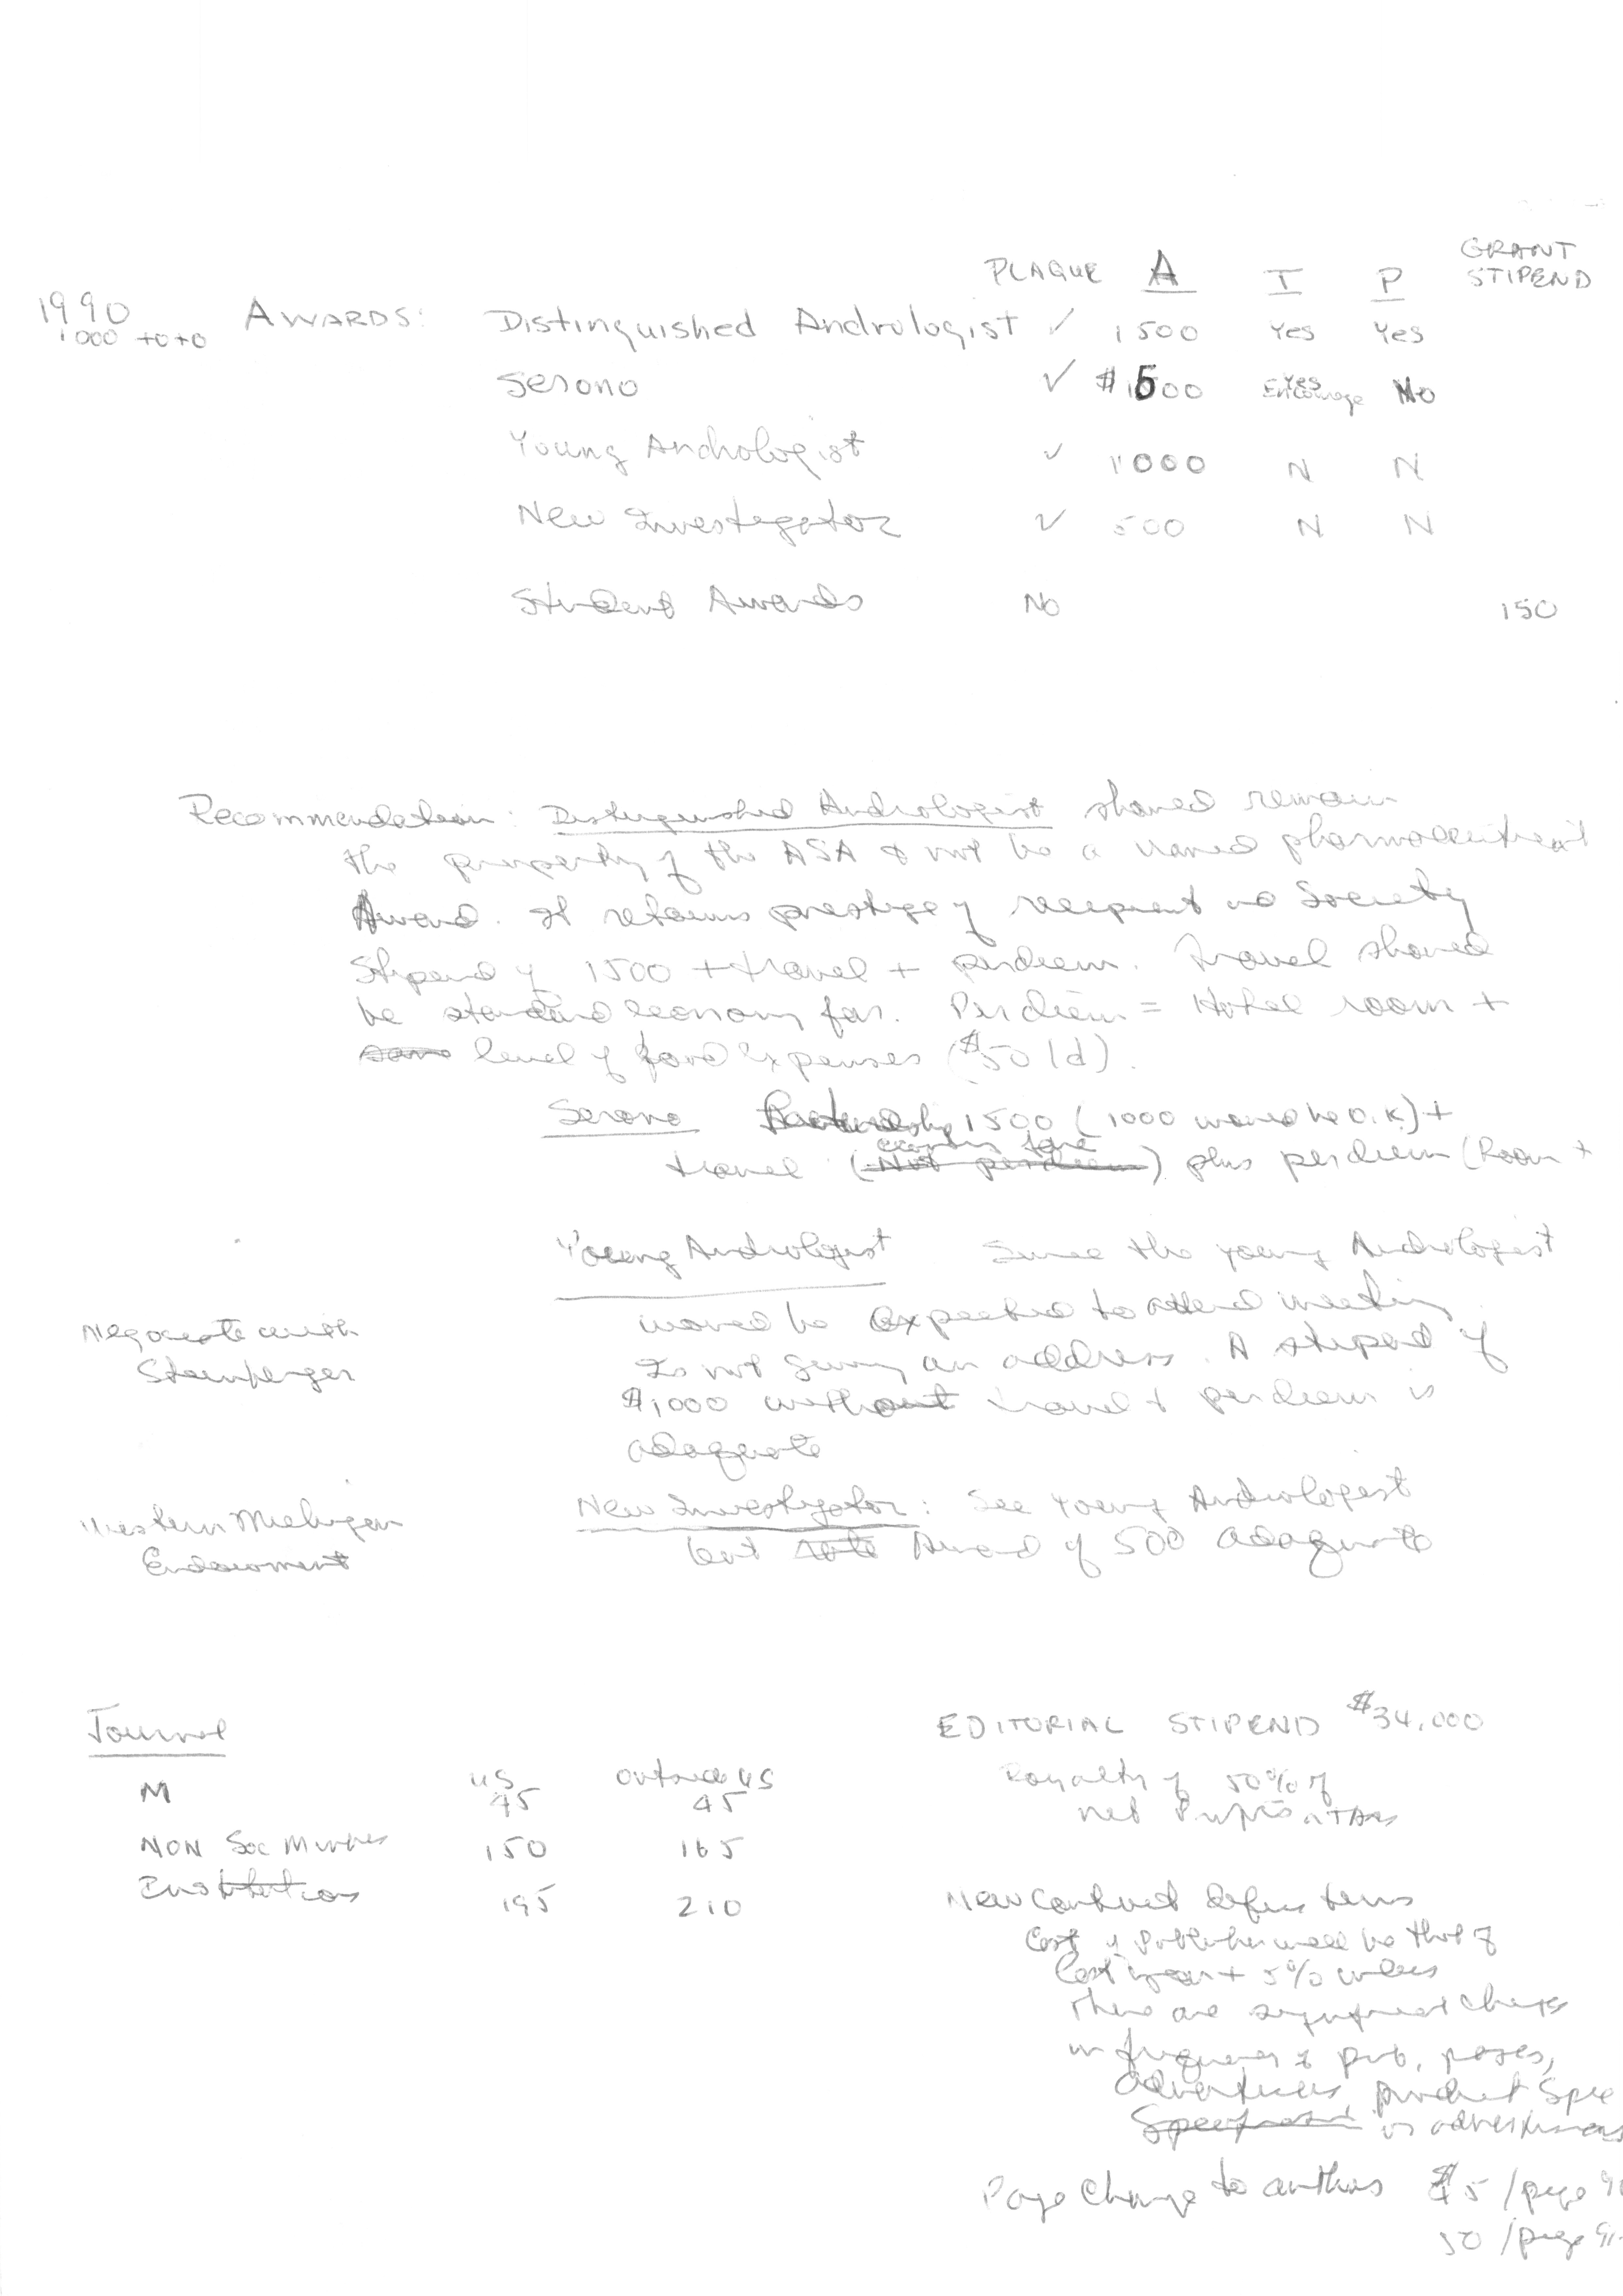 PLAQUE A T P GRANT STIPEND
1990 AWARDS: Distinguished Andrologist ✓ 1500 Yes Yes
1000 +0+0
Serono ✓ $1500 Yes No
Young Andrologist ✓ 1000 N N
New Investigator ✓ 500 N N
Student Awards No 150
Recommendation: Distinguished Andrologist should remain
the property of the ASA & not be a named pharmaceutical
Award. It retains prestige of recipient Society
Stipend of 1500 + travel + perdiem. Travel should
be standard economy far. Perdiem = Hotel room +
level of food expenses ($50/d).
Serono 1500 (1000 would be O.K) +
travel (economy fare) plus perdiem (Room +
Young Andrologist Since the young Andrologist
would be expected to attend meeting
Negociate with
Is not giving an address. A stipend of
Steinberger
$1,000 without travel + perdiem is
adaquate
Western Michigan
Endowment
New Investigator: See Young Andrologist
but Award of 500 adaquate
Journal
EDITORIAL STIPEND $34,000
US Outside US
M 45 45
Royalty of 50% of
net
NON Soc 150 165
Institutions 195 210
New Contract terms
Cost of Publisher will be that of
Last year + 5% unless
There are significant changes
in frequency of pub, pages,
product
or
Page Charge to authors $ 5 /page
50 /page